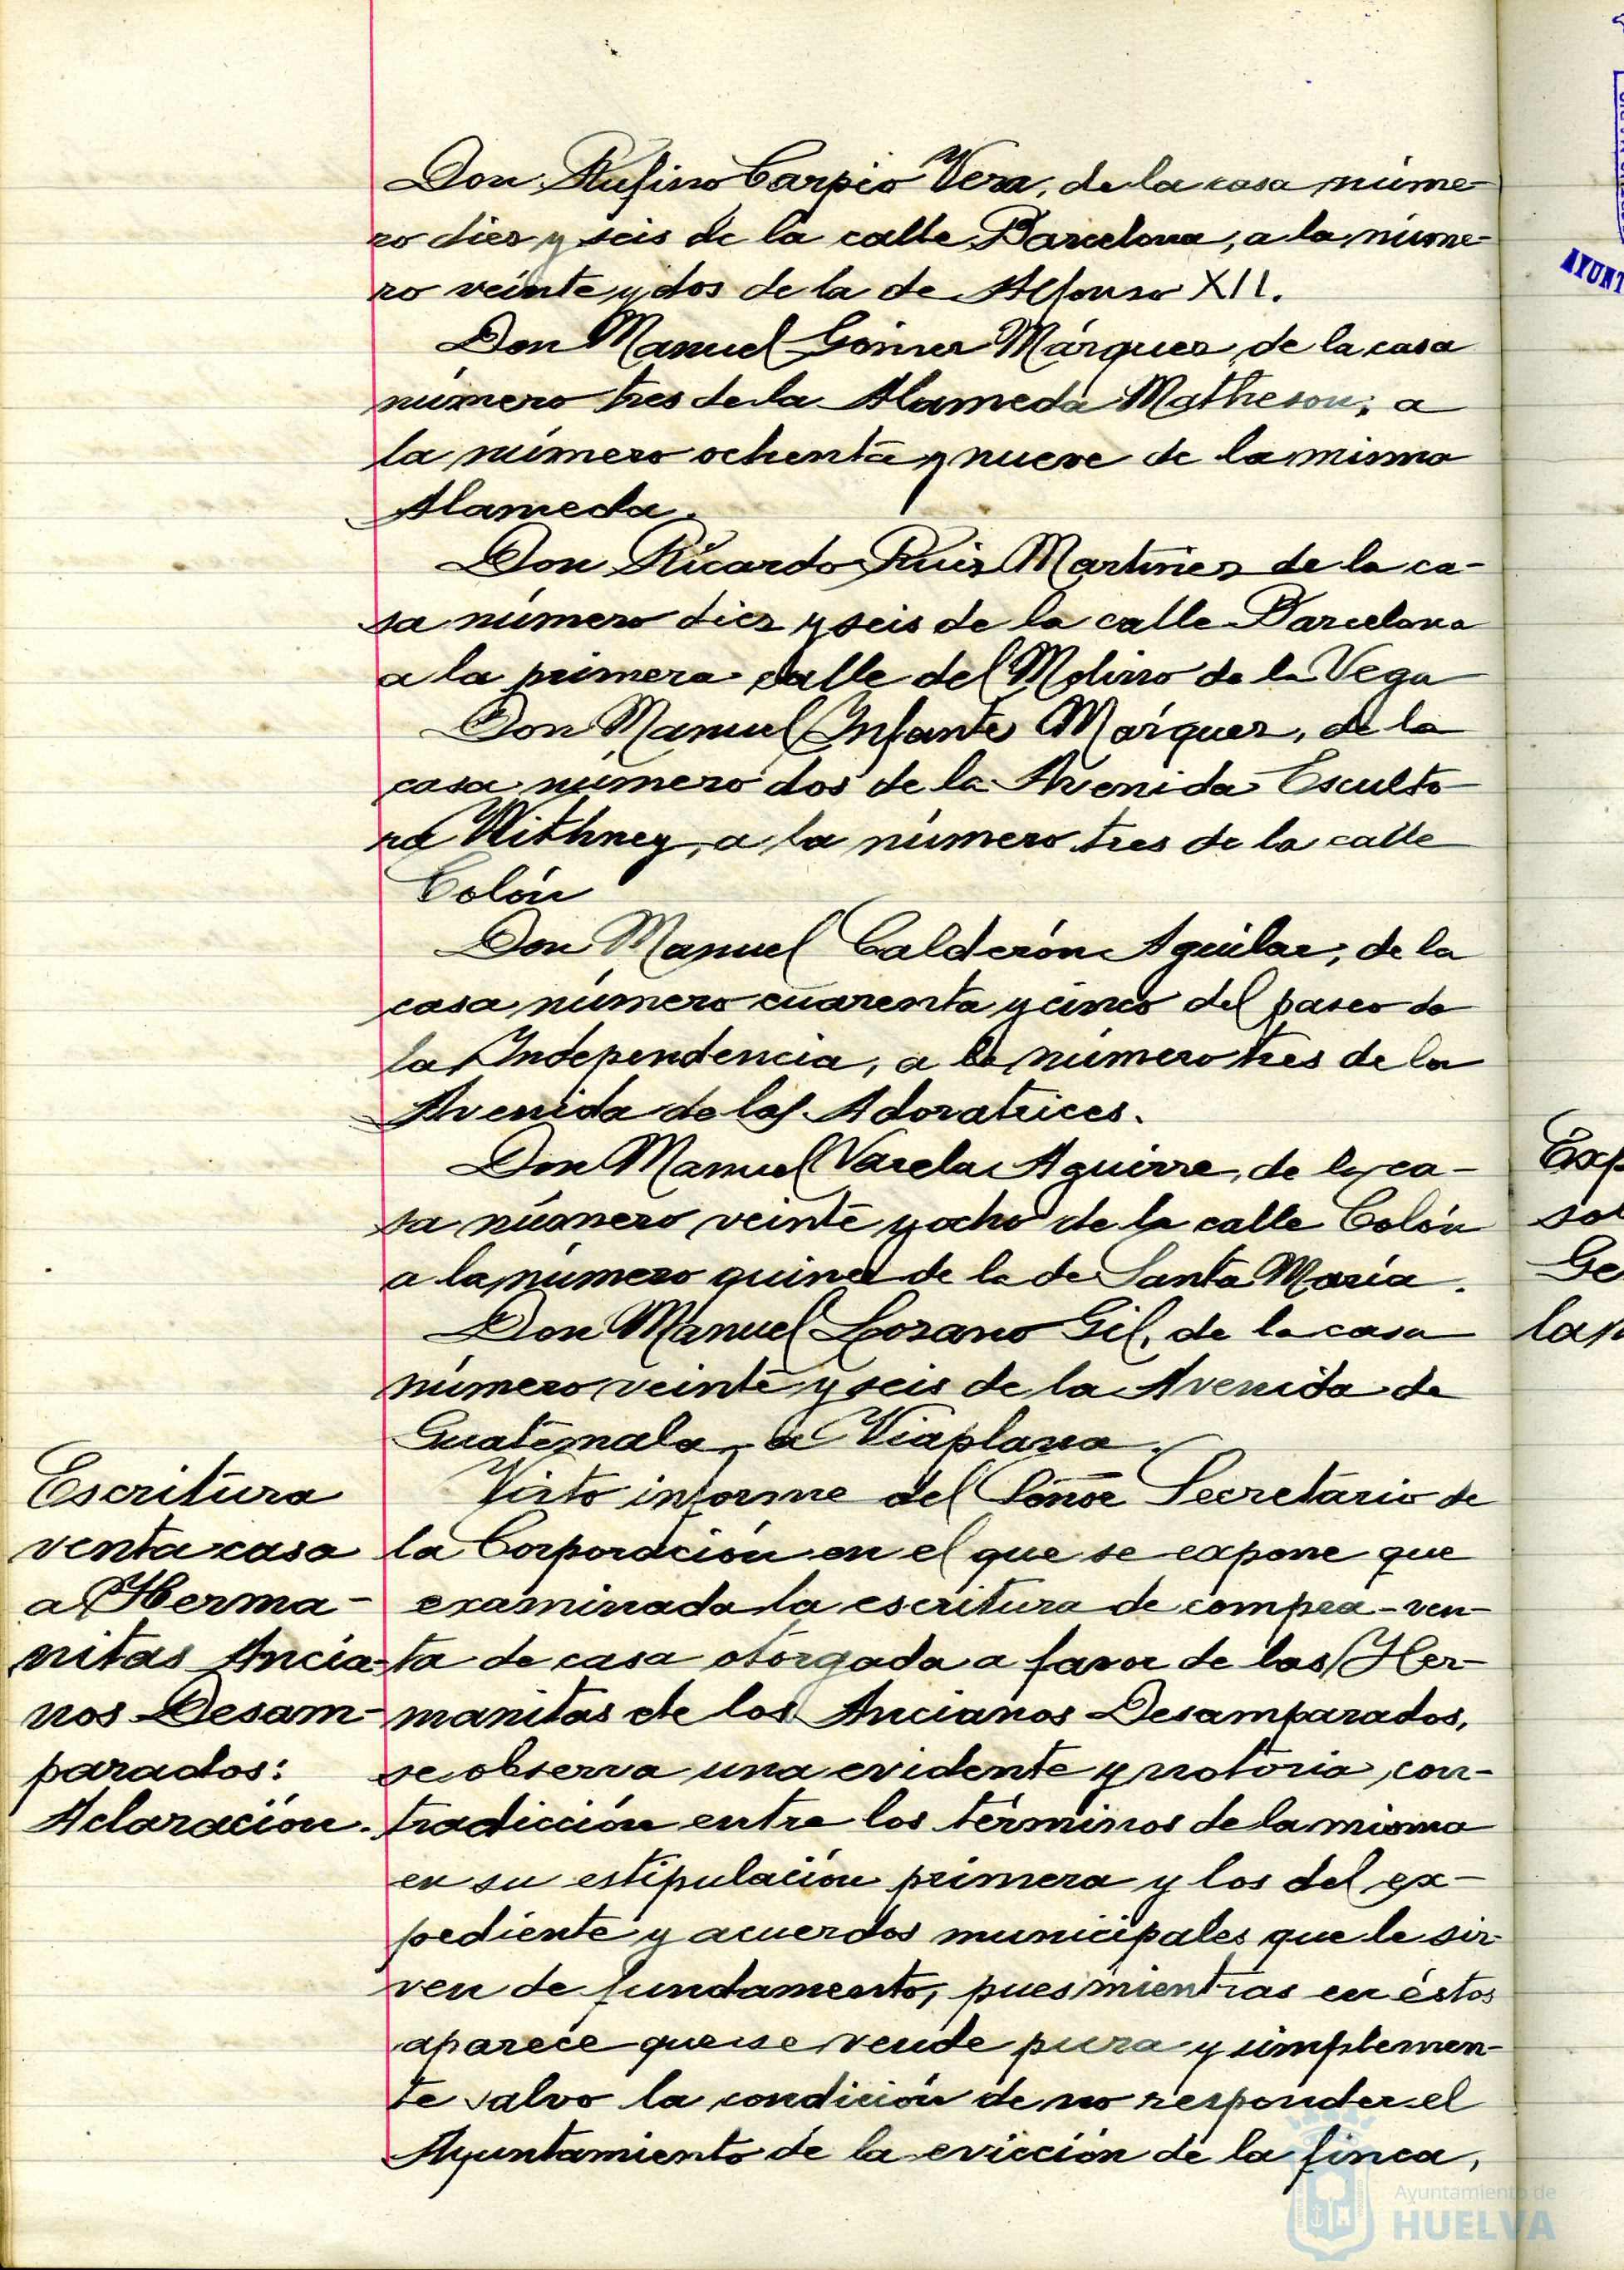 Don Rufino Carpio Vera, de la casa núme-
ro diez y seis de la calle Barcelona, a la núme-
ro veinte y dos de la de Alfonso XII.
Don Manuel Gómez Márquez, de la casa
número tres de la Alameda Matheson, a
la número ochenta y nueve de la misma
Alameda.
Don Ricardo Ruiz Martínez de la ca-
sa número diez y seis de la calle Barcelona
a la primera calle del Molino de la Vega
Don Manuel Infante Márquez, de la
casa número dos de la Avenida Esculto-
ra Withney, a la número tres de la calle
Colón
Don Manuel Calderón Aguilar, de la
casa número cuarenta y cinco del paseo de
la Independencia, a la número tres de la
Avenida de las Adoratrices.
Don Manuel Varela Aguirre, de la ca-
sa número veinte y ocho de la calle Colón
a la número quince de la de Santa María.
Don Manuel Lozano Gil, de la casa
número veinte y seis de la Avenida de
Guatemala, a Viaplana.
Escritura
venta casa
a Herma-
nitas Ancia-
nos Desam-
parados:
Aclaración.
Visto informe del Señor Secretario de
la Corporación en el que se expone que
examinada la escritura de compra-ven-
ta de casa otorgada a favor de las Her-
manitas de los Ancianos Desamparados,
se observa una evidente y notoria con-
tradicción entre los términos de la misma
en su estipulación primera y los del ex-
pediente y acuerdos municipales que le sir-
ven de fundamento, pues mientras en éstos
aparece que se vende pura y simplemen-
te salvo la condición de no responder el
Ayuntamiento de la evicción de la finca,
Exp
sol
Ge
lan
AYUNT
Ayuntamiento de
HUELVA